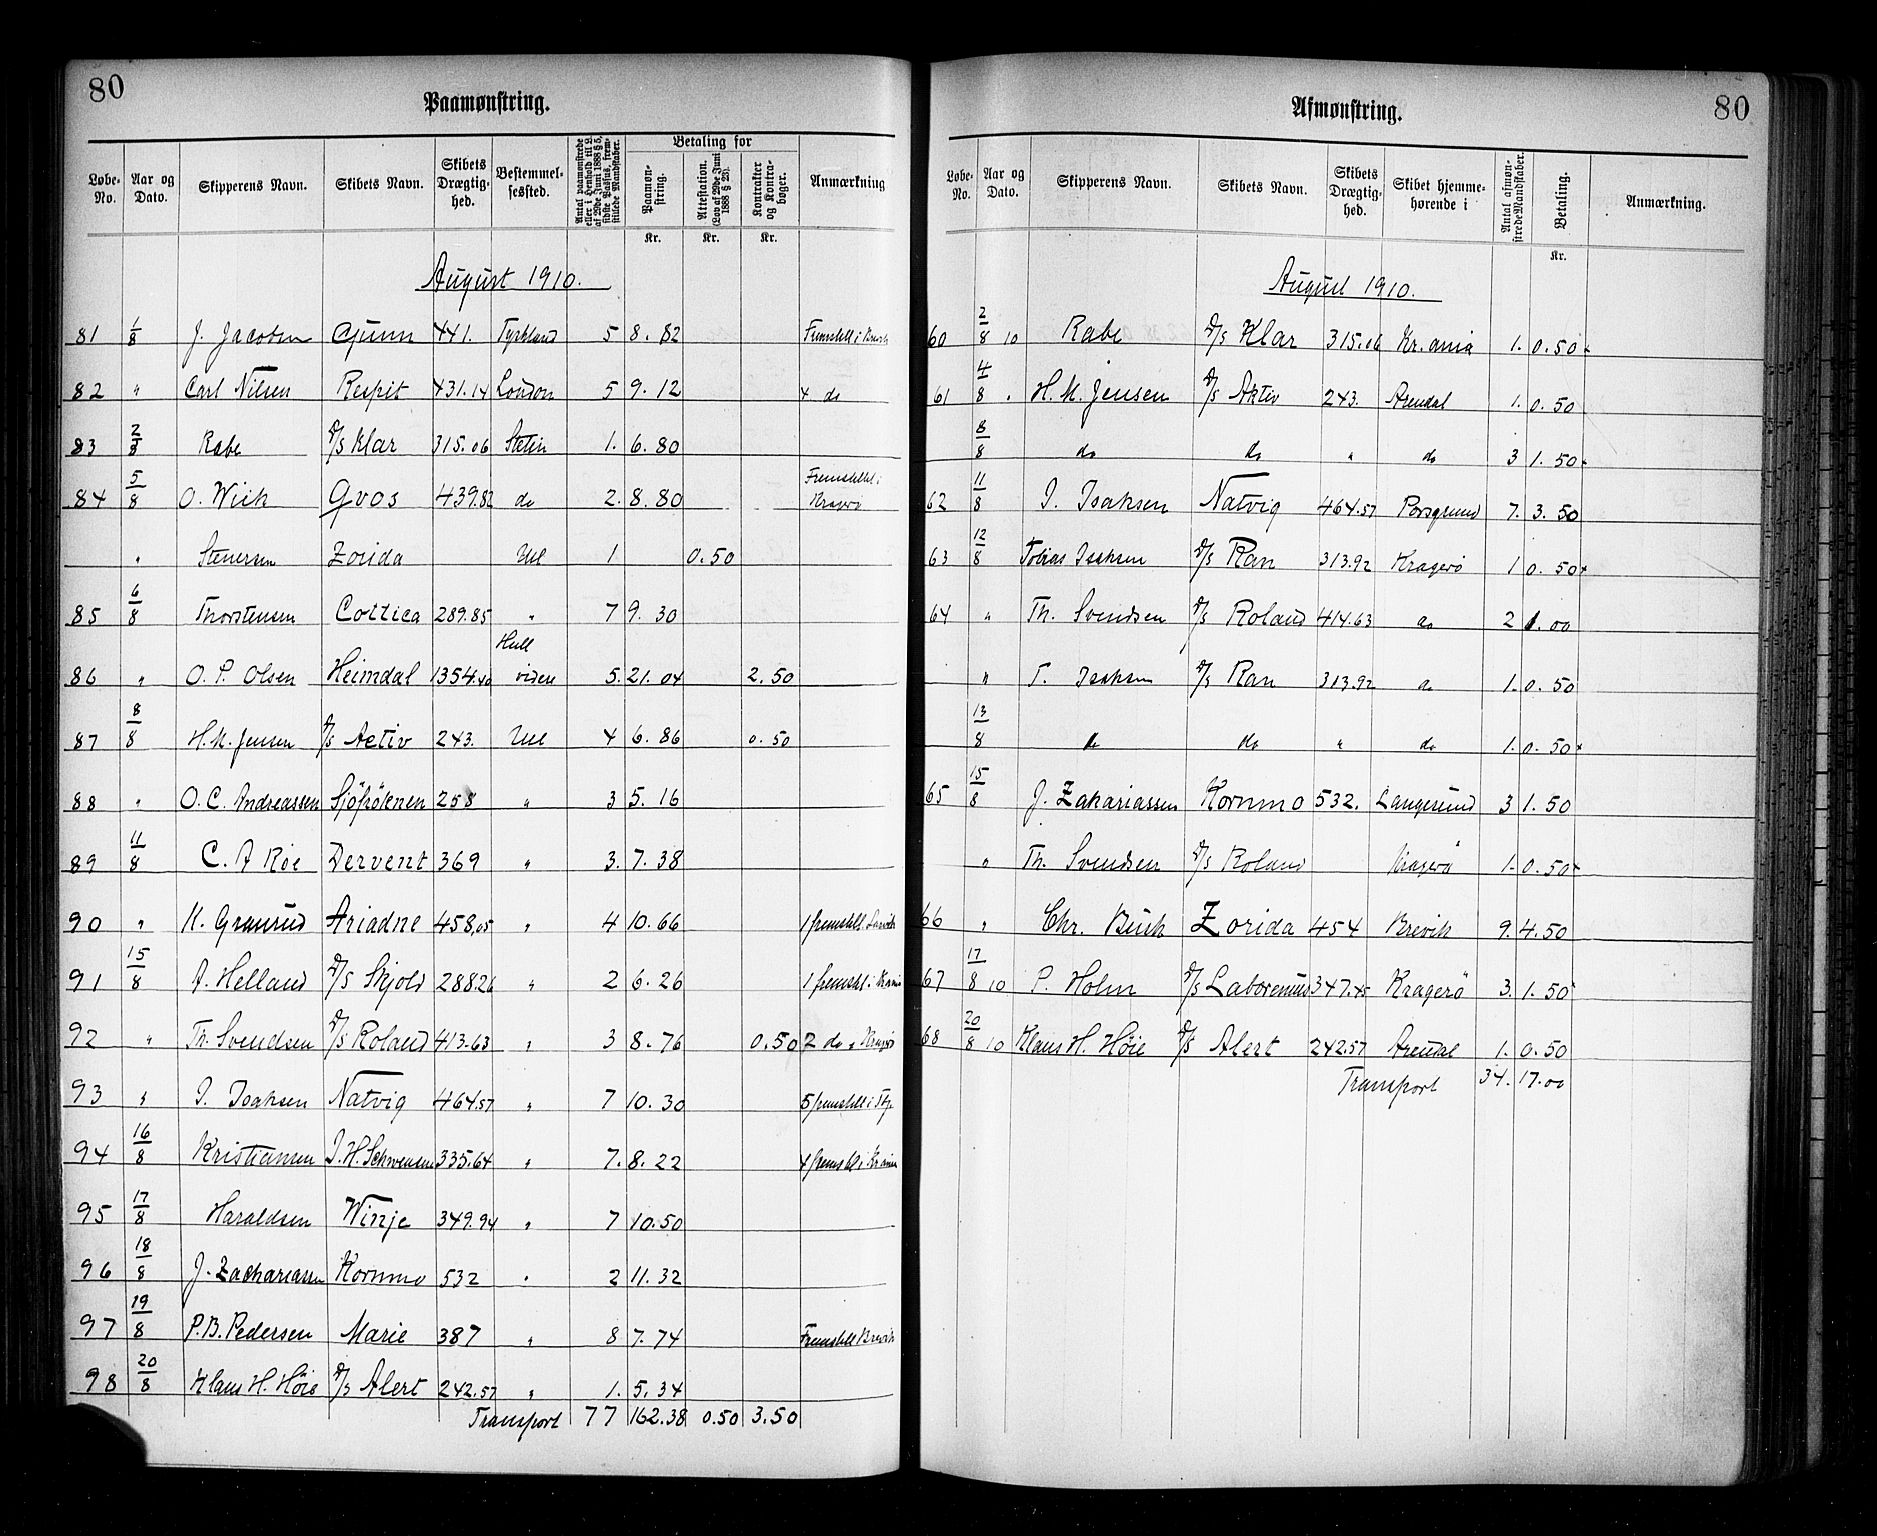 80
Paamønstring.
Løbe-No. Aar og Dato. Skipperens Navn. Skibets Navn. Skibets Drægtighed. Bestemmelsessted. Antal paamønstrede eller i Henhold til L. af 29de Juni 1888 § 5, sidste Passus, fremstillede Mandskaber. Betaling for Paamønstring. Attestation. (Lov af 29de Juni 1888 § 23). Kontrakter og Kontrabøger. Anmærkning
Kr. Kr. Kr.
August 1910.
81 1/8 J. Jacobsen Gunn 441. Tyskland 5 8. 82 Fremstill i Brevik
82 " Carl Nilsen Respit 431.14 London 5 9. 12 4 do
83 2/8 Rabe D/S Klar 315.06 Stetin 1. 6. 80
84 5/8 O. Wiik Gvos 439.82 do 2. 8. 80 Fremstillet i Kragerö
" Stenersen Zorida Udl 1 0.50
85 6/8 Thorstensen Cottica 289.85 " 7 9. 30
86 " O. P. Olsen Heimdal 1354.40 Hull videre 5. 21. 04 2. 50
87 8/8 H. M. Jensen D/S Activ 243. Udl 4 6. 86 0. 50
88 " O. C. Andreassen Sjöfröknen 258 " 3 5. 16
89 11/8 C. A Röe Dervent 369 " 3. 7. 38
90 " K. Granrud Ariadne 458,05 " 4 10. 66 1 fremstill. Larvik
91 15/8 A. Helland D/S Skjold 288.26 " 2 6. 26 1 fremstl i Krania
92 " Th. Svendsen D/S Roland 413.63 " 3 8. 76 0.50 2 do " Kragerö
93 " I. Isaksen Natvig 464.57 " 7 10. 30 5 fremstill i
94 16/8 Kristiansen I. H. Schwensen 335.64 " 7. 8. 22 4 fremstl i Krania
95 17/8 Haraldsen Winje 349.94 " 7 10.50
96 18/8 J. Zachariasen Kornmo 532 " 2 11. 32
97 19/8 P. B. Pedersen Marie 387 " 8 7. 74 Fremstill Brevik
98 20/8 Klaus H. Höie D/S Alert 242.57 " 1. 5. 34
Transport 77 162.38 0.50 3.50
Afmønstring.
80
Løbe-No. Aar og Dato. Skipperens Navn. Skibets Navn. Skibets Drægtighed. Skibet hjemmehørende i Antal afmønstrede Mandskaber. Betaling. Anmærkning.
Kr.
August 1910.
60 2/8 10 Rabe D/S Klar 315.06 Kr.ania 1. 0. 50
61 4/8 " H. M. Jensen D/S Aktiv 243. Arendal 1. 0. 50
8/8 do do " do 3 1. 50
62 11/8 I. Isaksen Natvig 464.57 Porsgrund 7. 3. 50
63 12/8 Tobias Isaksen D/S Ran 313.92 Kragerö 1 0. 50
64 " Th. Svendsen D/S Roland 414.63 do 2 1. 00
" T. Isaksen D/S Ran 313.92 do 1. 0. 50
13/8 do do " do 1. 0. 50
65 15/8 J. Zakariassen Kornmo 532. Langesund 3 1. 50
" Th. Svendsen D/S Roland Kragerö 1. 0. 50
66 " Chr. Busk Zorida 454 Brevik 9. 4. 50
67 17/8 10 P. Holm D/S Laboremus 347.45 Kragerö 3. 1. 50
68 20/8 10 Klaus H. Höie D/S Alert 242.57 Arendal 1. 0. 50
Transport 34. 17.00